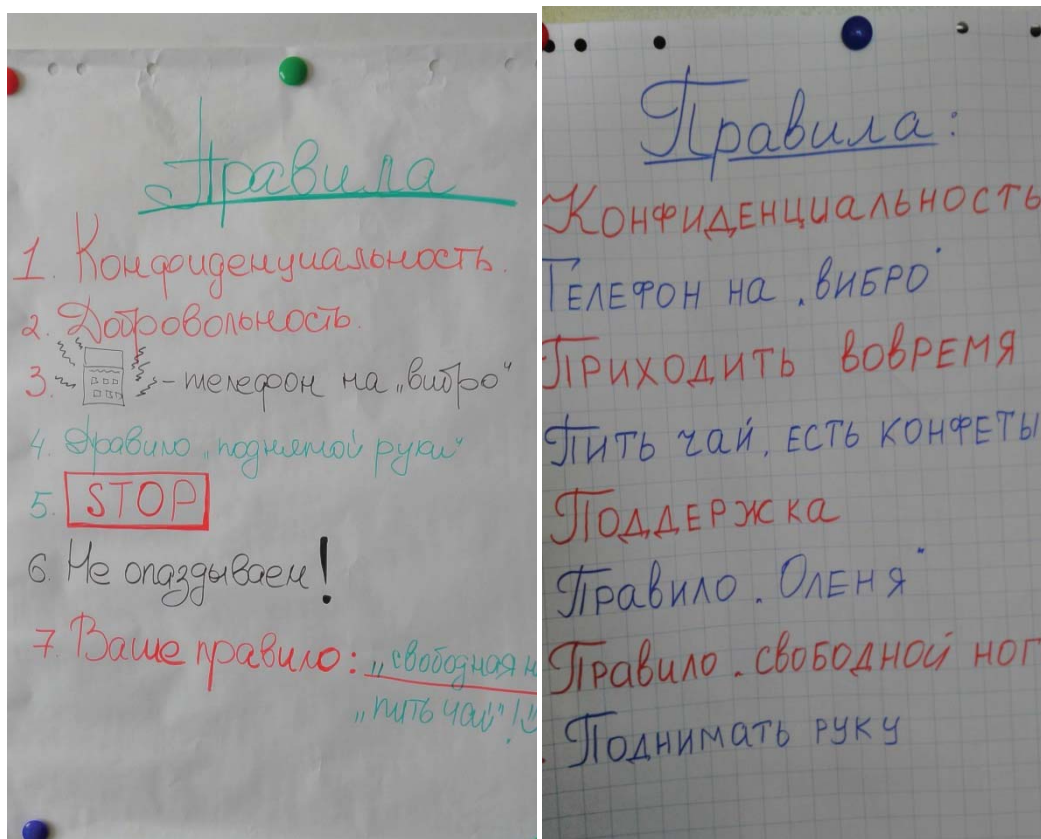 Правила
1. Конфиденциальность.
2. Добровольность.
3. - телефон на „вибро“
4. Правило „поднятой руки“
5. STOP
6. Не опаздываем!
7. Ваше правило: „свободная н
„пить чай“!
Правила:
Конфиденциальность
Телефон на „вибро“
Приходить вовремя
Пить чай, есть конфеты
Поддержка
Правило „Оленя“
Правило „свободной ног
Поднимать руку